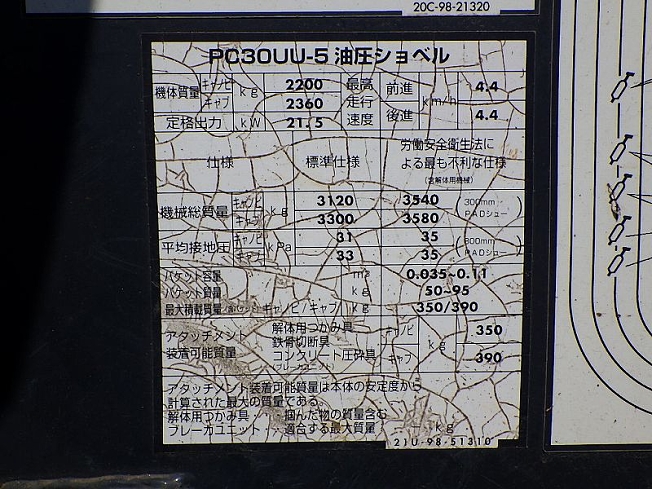 20C-98-21320
PC30UU-5 油圧ショベル
機体質量 キャノピ kg 2200 最高 前進 km/h 4.4
キャブ 2360 走行
定格出力 kW 21.5 速度 後進 4.4
仕様 標準仕様 労働安全衛生法に
よる最も不利な仕様
(含解体用機械)
機械総質量 キャノピ kg 3120 3540 (300mm
キャブ 3300 3580 PADシュー)
平均接地圧 キャノピ kPa 31 35 (300mm
キャブ 33 35 PADシュー)
バケット容量 m³ 0.035~0.11
バケット質量 kg 50~95
最大積載質量 キャノピ/キャブ kg 350/390
アタッチメント 解体用つかみ具 キャノピ 350
鉄骨切断具 kg
装着可能質量 コンクリート圧砕具 キャブ 390
(ブレーカユニット)
アタッチメント装着可能質量は本体の安定度から
計算された最大の質量である
解体用つかみ具 掴んだ物の質量含む
ブレーカユニット 適合する最大質量 kg
21U-98-51310